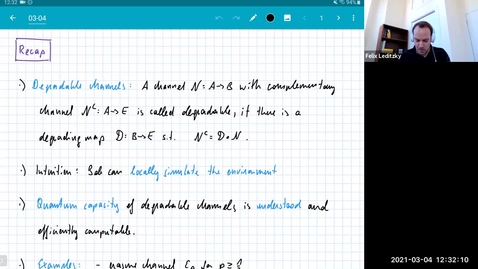 12:32
91%
03-04
1
Felix Leditzky
Recap
·) Degradable channels: A channel N: A→B with complementary
channel Nᶜ: A→E is called degradable, if there is a
degrading map D: B→E s.t. Nᶜ = D∘N.
·) Intuition: Bob can locally simulate the environment
·) Quantum capacity of degradable channels is understood and
efficiently computable.
·) Examples: - erasure channel
for p ≥
2021-03-04 12:32:10